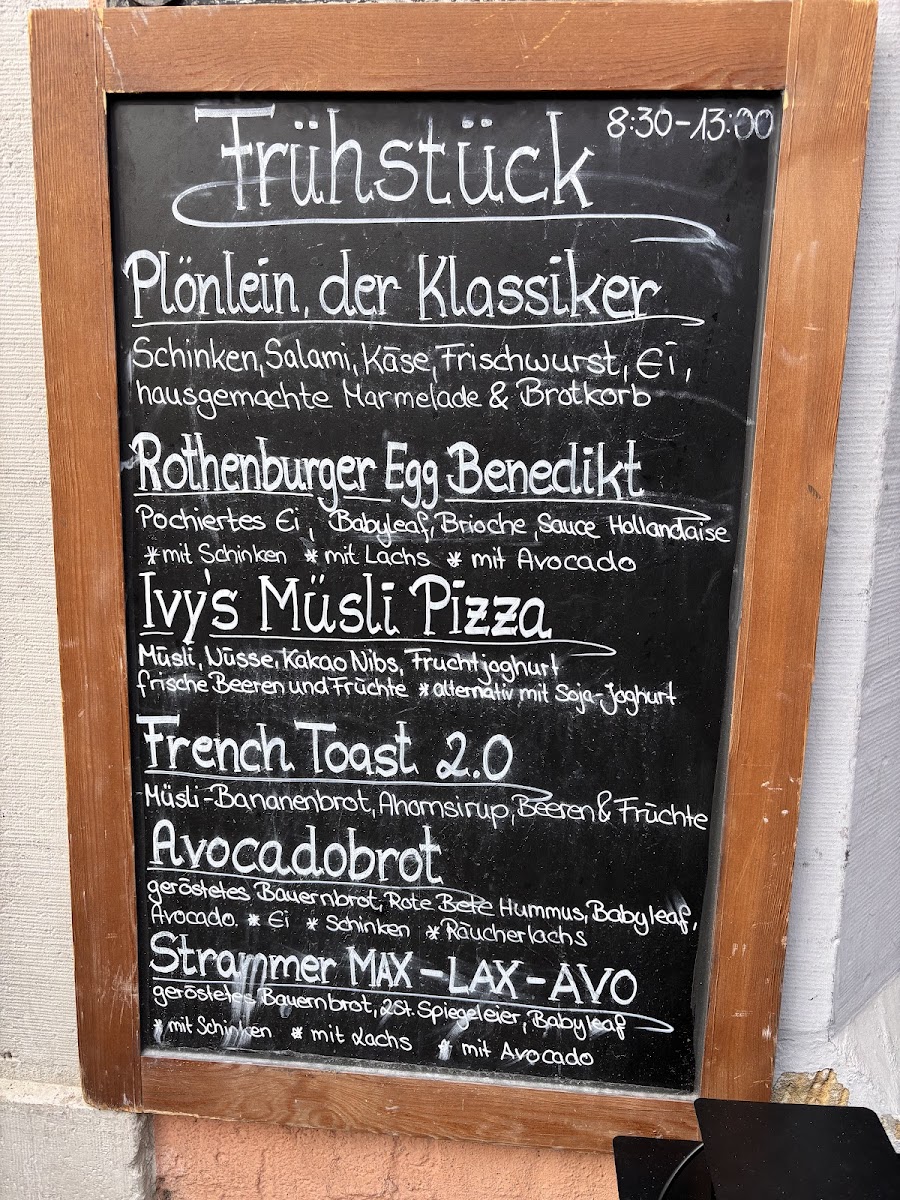 Frühstück 8:30-13:00
Plönlein, der Klassiker
Schinken, Salami, Käse, Frischwurst, Ei,
hausgemachte Marmelade & Brotkorb
Rothenburger Egg Benedikt
Pochiertes Ei, Babyleaf, Brioche, Sauce Hollandaise
*mit Schinken * mit Lachs * mit Avocado
Ivy's Müsli Pizza
Müsli, Nüsse, Kakao Nibs, Fruchtjoghurt
frische Beeren und Früchte *alternativ mit Soja-Joghurt
French Toast 2.0
Müsli-Bananenbrot, Ahornsirup, Beeren & Früchte
Avocadobrot
geröstetes Bauernbrot, Rote Bete Hummus, Babyleaf,
Avocado. * Ei * Schinken * Räucherlachs
Strammer MAX-LAX-AVO
geröstetes Bauernbrot, 2St. Spiegeleier, Babyleaf
*mit Schinken * mit Lachs * mit Avocado